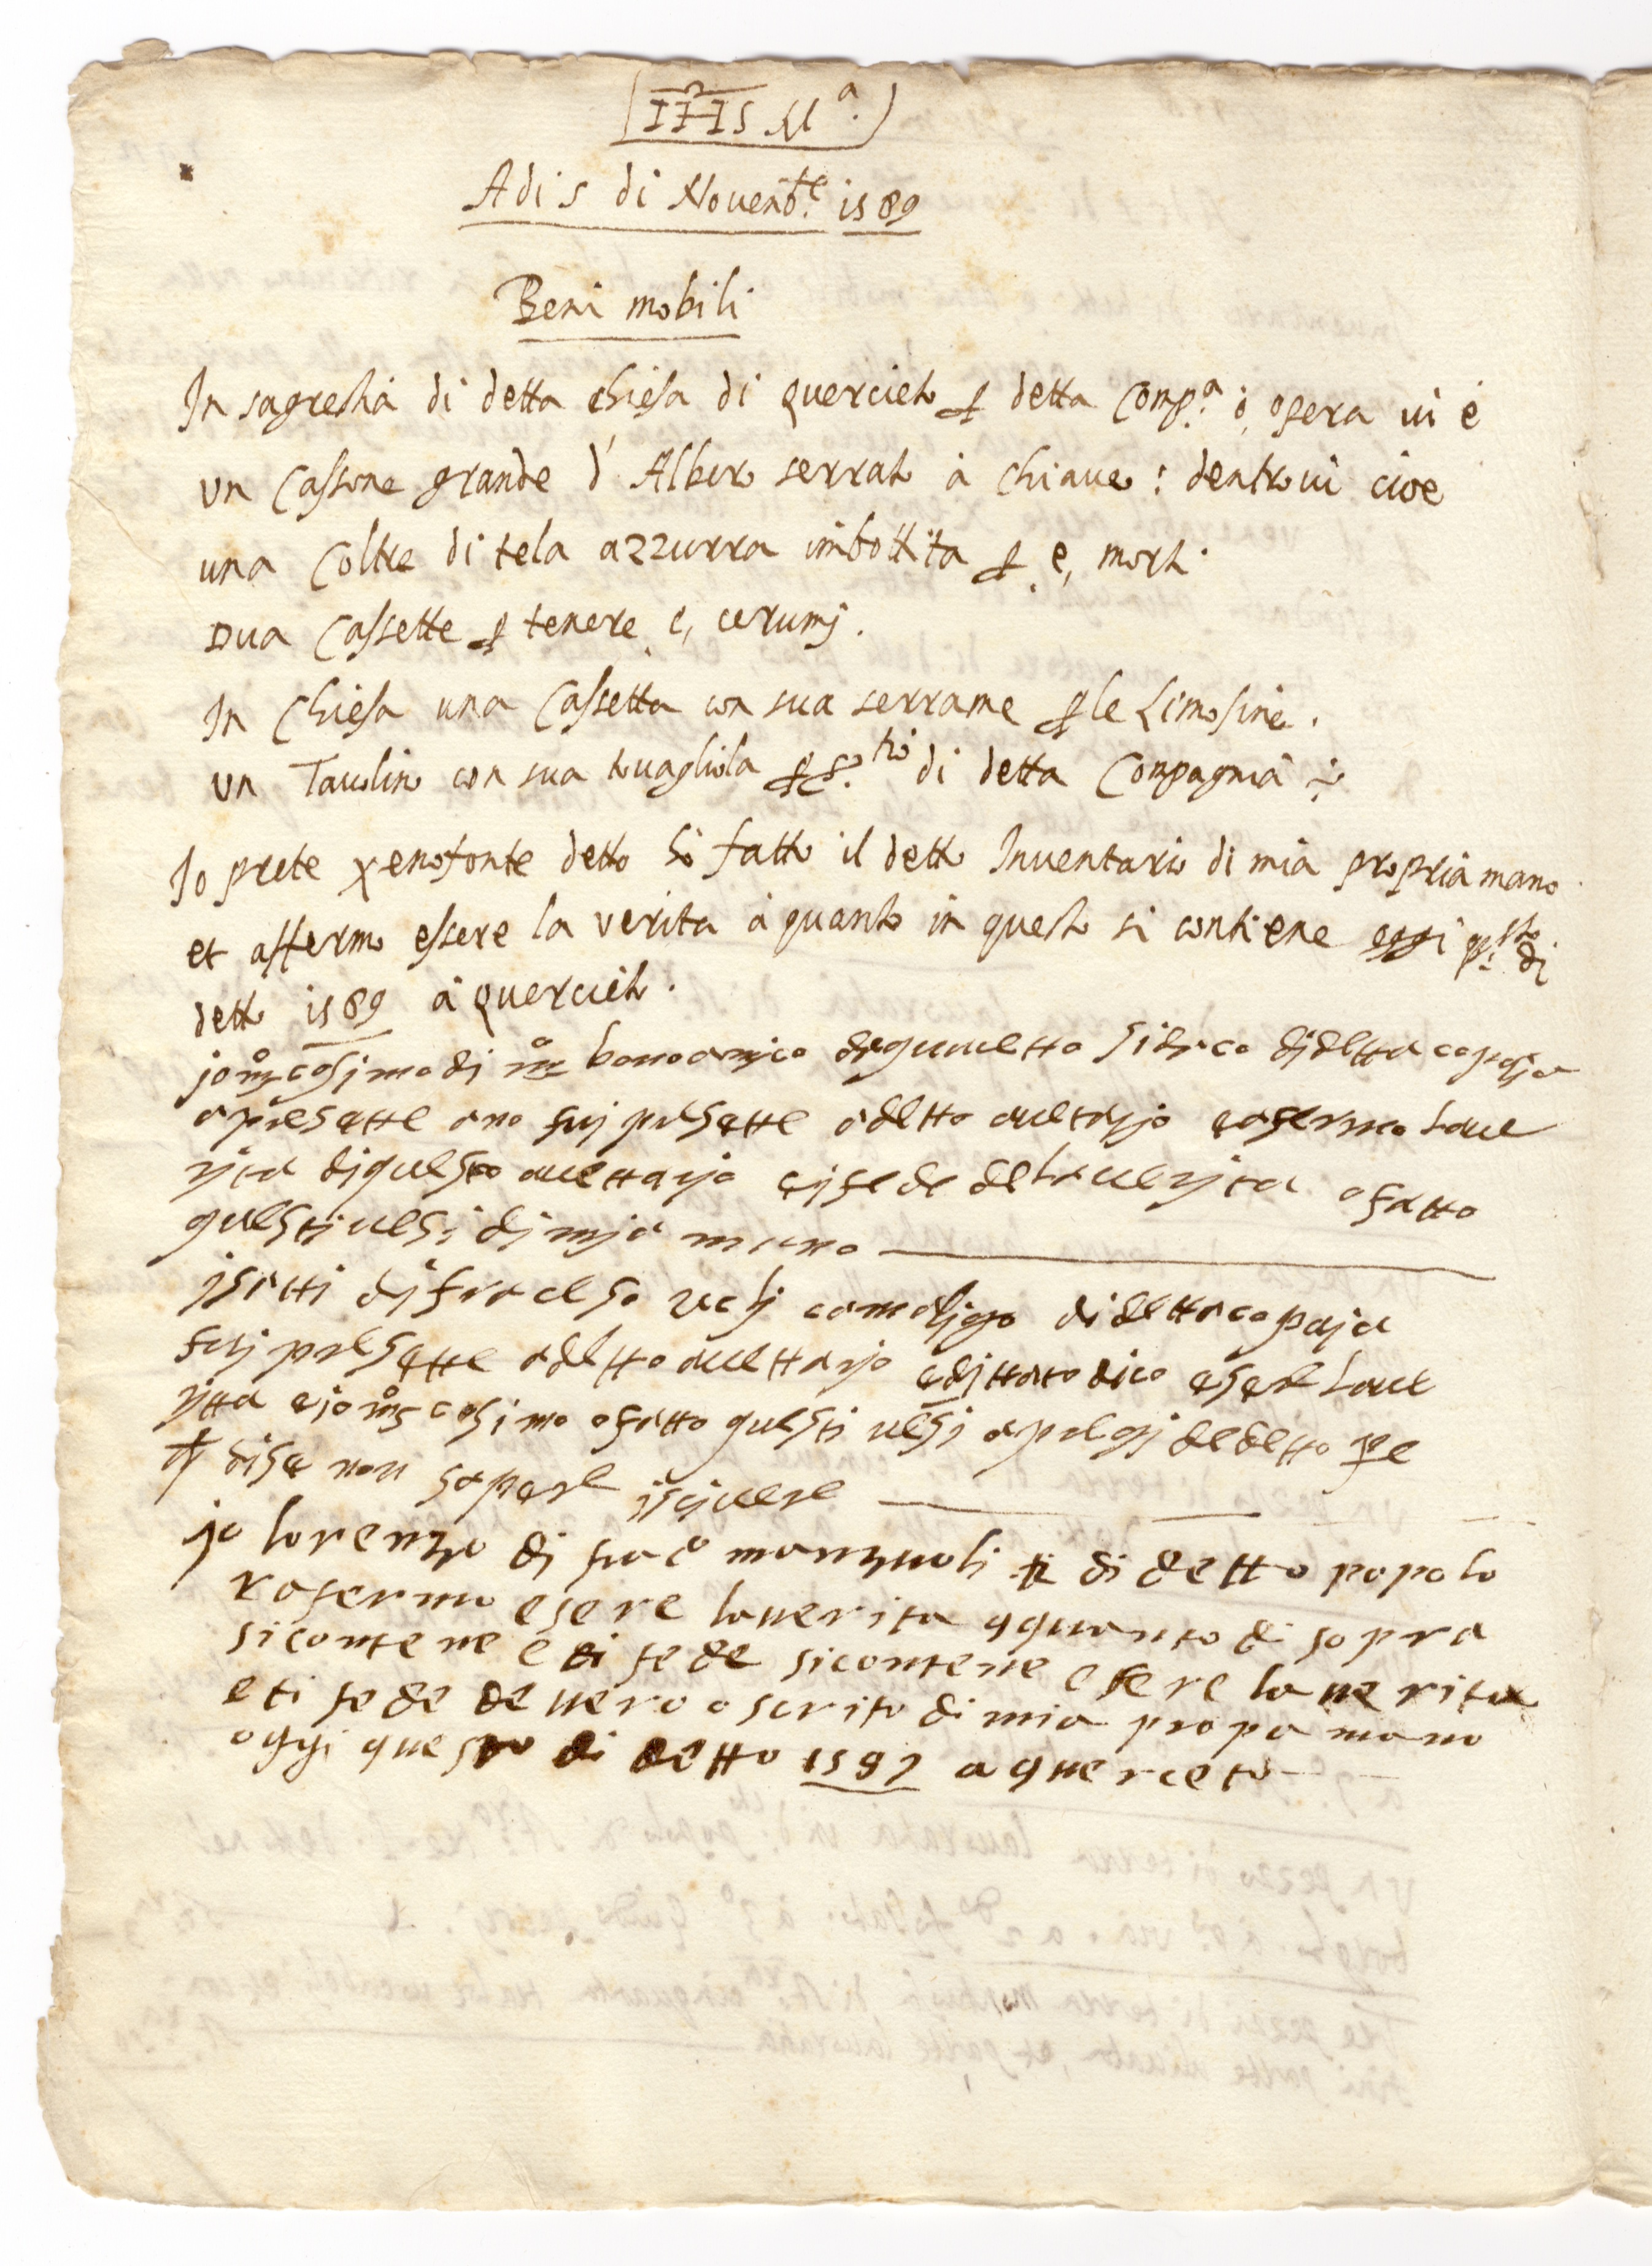 IHS Mª.
Adi 5 di Novenb.te 1589
Beni mobili
In sagrestia di detta chiesa di Quercieto p detta Comp.ª ò, opera ui è
un Cassone grande d' Albero serrato à chiaue: dentroui cioe
una Coltre di tela azzurra imbottita p e, morti.
Dua Cassette p tenere e, cerumj.
In Chiesa una Cassetta con sua serrame p le Limosine.
un Tauolino con sua touagliola di detta Compagnia
Io prete Xenofonte detto hò fatto il detto Inuentario di mia propria mano
et affermo essere la verita à quanto in questo si contiene oggi q.sto di
detto 1589 à Quercieto.
jo cosimo di bonoamico sidaco dj detta
apresette ano fuj presette a detto auetarjo e afermo laue
rjta dj questo auettarjo ej fede dela uerjta o fatto
questj uersi dj mja mano
di detta copajia
fuj presette a detto auettarjo e djttato dico esere laue
rjtta e jo cosimo o fatto questi uersi a pregi de detto pe
dise non sapere iscjuere
jo lorenzo di manzuoli di detto popolo
afermo esere la uerita qquanto di sopra
si contene e di fede si contene esere la uerita
e ti fede de uero o scrito di mia propa mano
oggi questo di detto 1589 a querceto